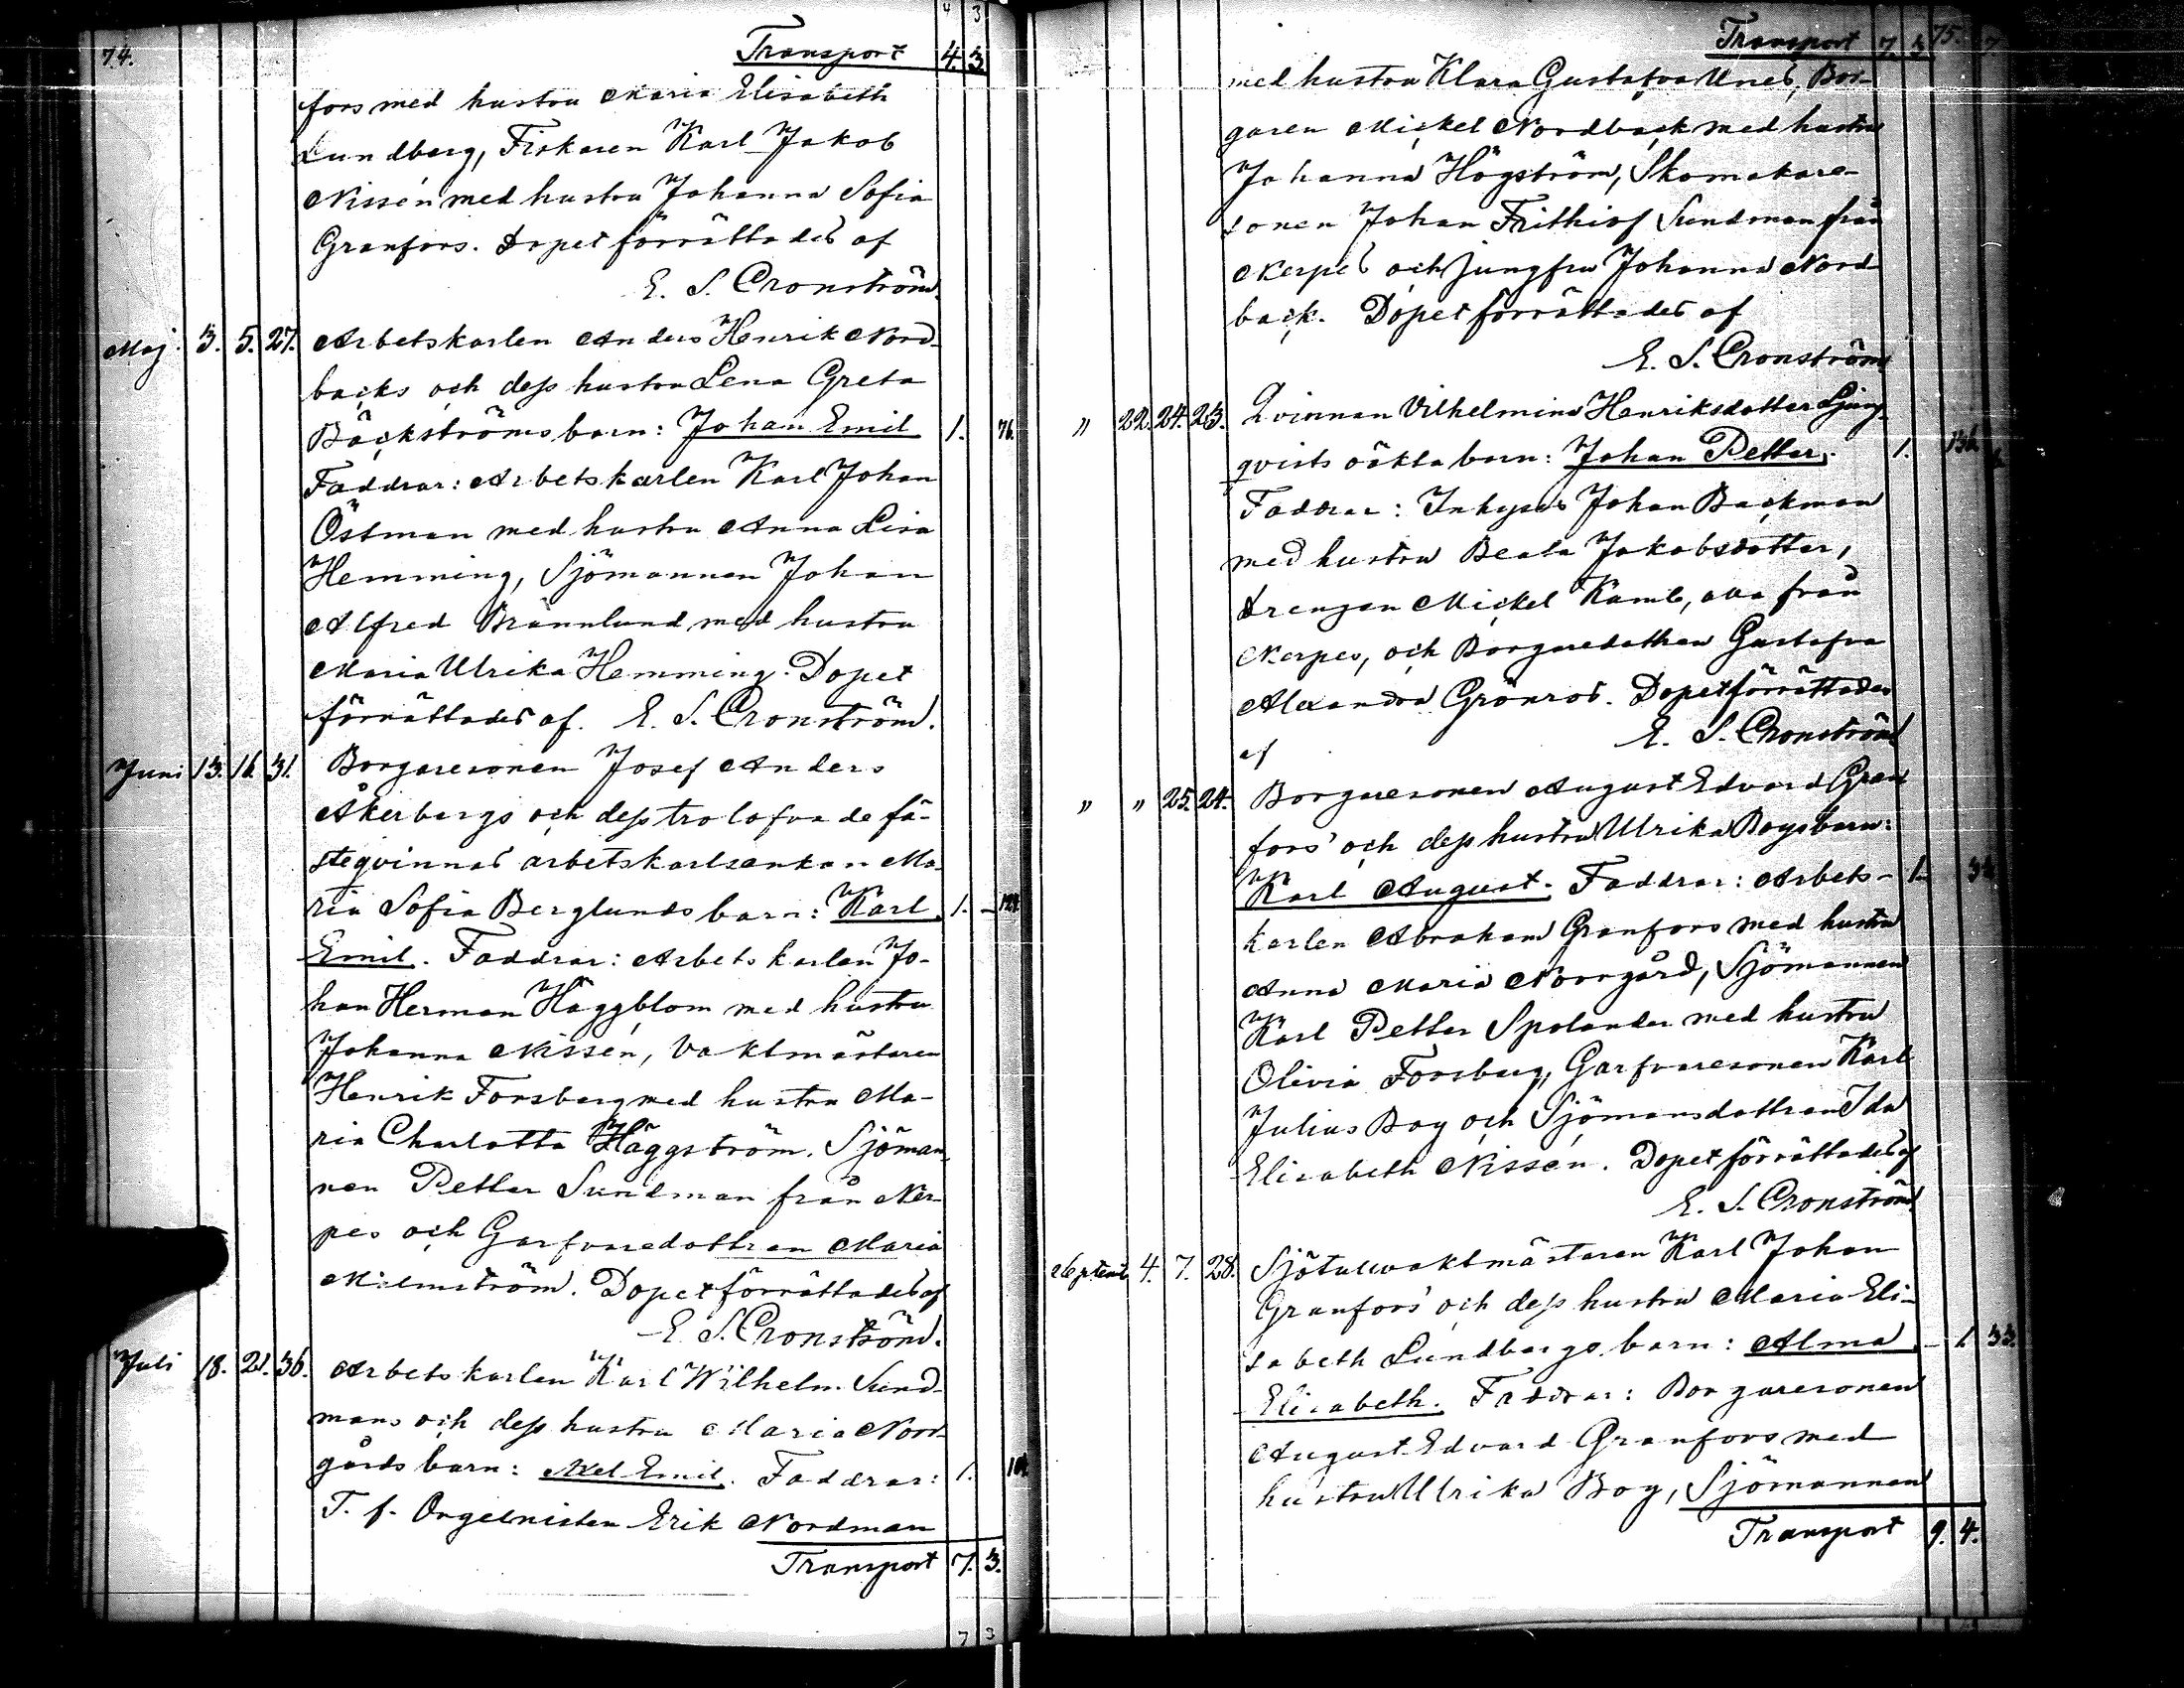 4 3
74. Transport 4. 3.
fors med hustru Maria Elisabeth
Lundberg, Fiskaren Karl Jakob
Nissén med hustru Johanna Sofia
Granfors. Dopet förrättades af
E. S. Cronström.
Maj 3. 5. 27. Arbetskarlen Anders Henrik Nord-
backs och dess hustru Lena Greta
Bäckströms barn: Johan Emil 1. 76.
Faddrar: Arbetskarlen Karl Johan
Östman med hustru Anna Lisa
Hemming, Sjömannen Johan
Alfred Brännlund med hustru
Maria Ulrika Hemming. Dopet
förrättades af. E. S. Cronström.
Juni 13. 16. 31. Borgaresonen Josef Anders
Åkerbergs och dess trolofvade fä-
steqvinnas arbetskarlsenkan Ma-
ria Sofia Berglunds barn: Karl 1. -
Emil. Faddrar: Arbetskarlen Jo-
han Herman Häggblom med hustru
Johanna Nissén, Vaktmästaren
Henrik Forsberg med hustru Ma-
ria Charlotta Häggström. Sjöman-
nen Petter Sundman från Ner-
pes och Garfvaredottren Maria
Malmström. Dopet förrättades af
E. S. Cronström.
Juli 18. 21. 36. Arbetskarlen Karl Wilhelm Sund-
mans och dess hustru Maria Norr-
gårds barn: Axel Emil. Faddrar: 1.
T. f. Orgelnisten Erik Nordman
Transport 7. 3.
7 3
Transport 7. 3. 75.
med hustru Klara Gustafva Unes, Bor-
garen Mickel Nordback med hustru
Johanna Högström, Skomakare-
sonen Johan Frithiof Sundman från
Nerpes och jungfru Johanna Nord-
back. Dopet förrättades af
E. S. Cronström
" 22. 24. 23. Qvinnan Vilhelmina Henriksdotter Ljung-
qvists oäkta barn: Johan Petter. 1.
Faddrar: Inhyses Johan Backman
med hustru Beata Jakobsdotter,
drengen Mickel Kamb, alla från
Nerpes, och Borgaredottren Gustafva
Alexandra Grönros. Dopet förrättades
af E. S. Cronström
" " 25. 24. Borgaresonen August Edvard Gran-
fors' och dess hustru Ulrika Boys barn:
Karl August. Faddrar: Arbets- 1.
karlen Abraham Granfors med hustru
Anna Maria Norrgård, Sjömannen
Karl Petter Spolander med hustru
Olivia Forsberg, Garfvaresonen Karl
Julius Boy och Sjömansdottren Ida
Elisabeth Nissén. Dopet förrättades af
E. S. Cronström
Septemb. 4. 7. 28. Sjötullvaktmästaren Karl Johan
Granfors' och dess hustru Maria Eli-
sabeth Lundbergs barn: Alma - 1. 33.
Elisabeth. Faddrar: Borgaresonen
August Edvard Granfors med
hustru Ulrika Boy, Sjömannen
Transport 9. 4.